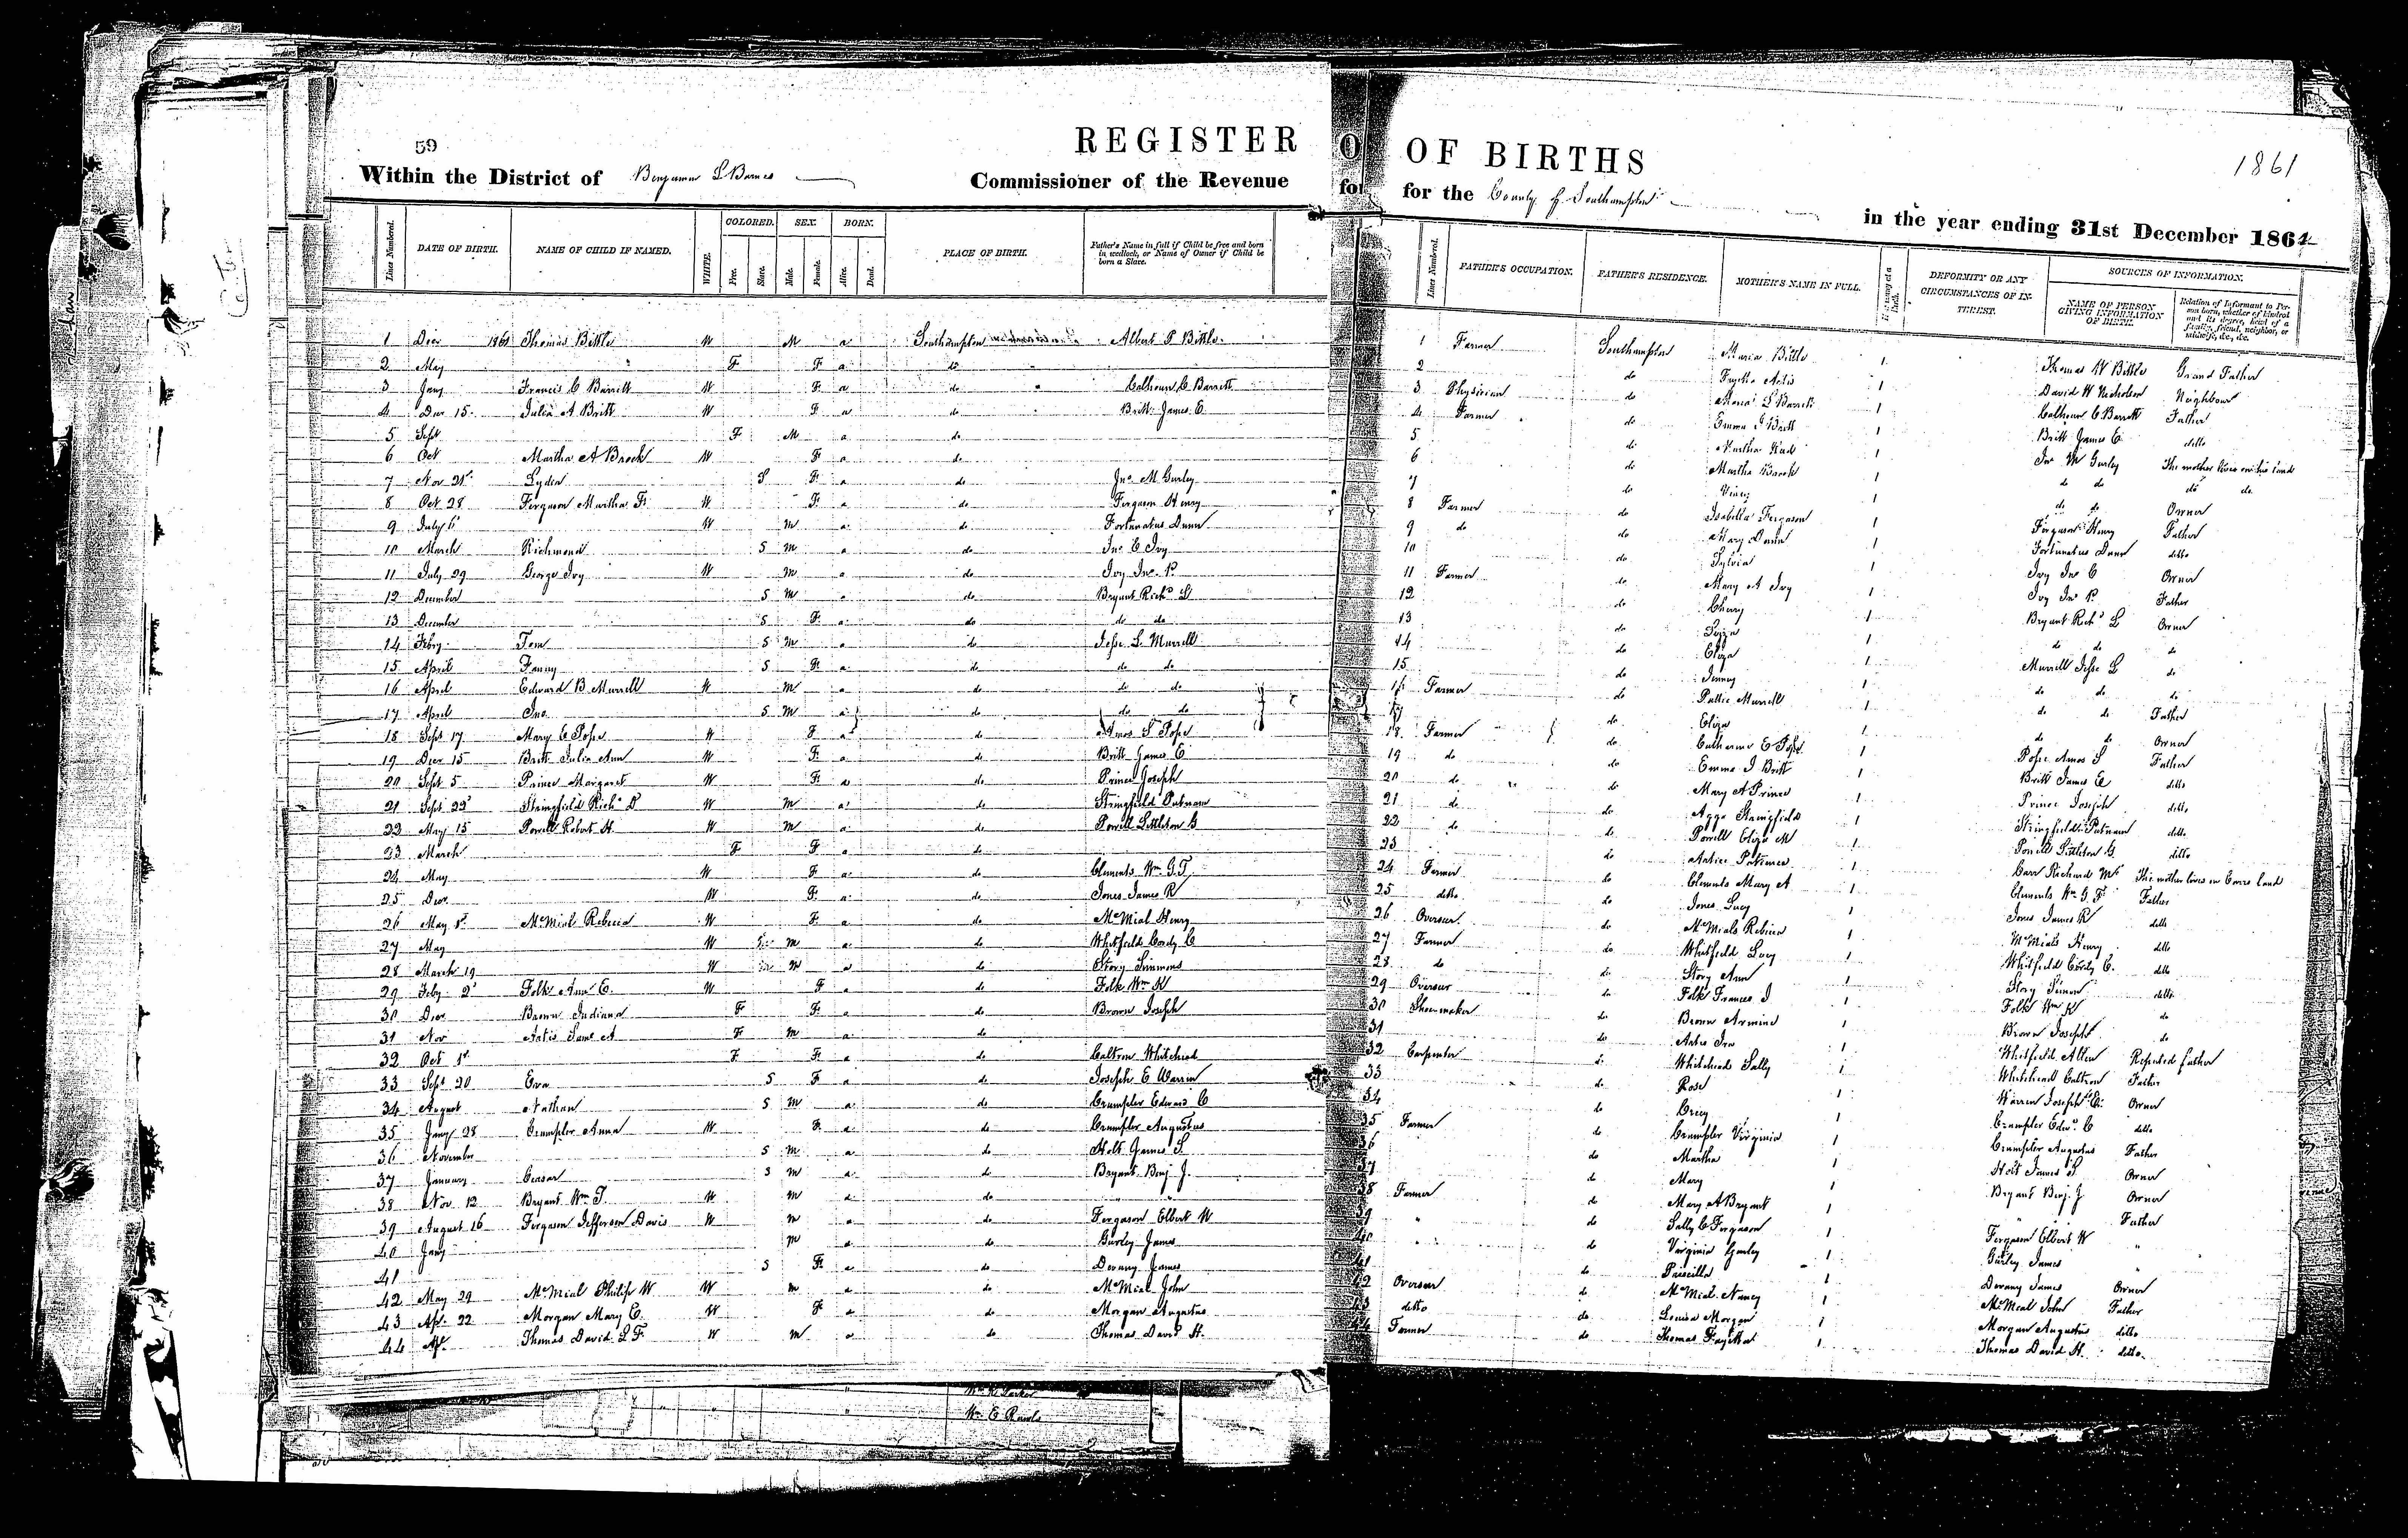 59
REGISTER OF BIRTHS
1861
Within the District of Benjamin L Barnes Commissioner of the Revenue for the County of Southampton in the year ending 31st December 1861
Lines Numbered. DATE OF BIRTH. NAME OF CHILD IF NAMED. WHITE. COLORED. Free. Slave. SEX. Male. Female. BORN. Alive. Dead. PLACE OF BIRTH. Father's Name in full if Child be free and born in wedlock, or Name of Owner if Child be born a Slave.
Lines Numbered. FATHER'S OCCUPATION. FATHER'S RESIDENCE. MOTHER'S NAME IN FULL. DEFORMITY OR ANY CIRCUMSTANCES OF INTEREST. SOURCES OF INFORMATION. NAME OF PERSON GIVING INFORMATION OF BIRTH. Relation of Informant to Person born, whether of kindred and its degree, head of a family, friend, neighbor, or midwife, &c., &c.
1 Decr 1861 Thomas Bittle W M a Southampton Albert P Bittle 1 Farmer Southampton Maria Bittle 1 Thomas W Bittle Grand Father
2 May F F a do 2 do Artis 1 David W Nicholson Neighbour
3 Jany Francis C Barrett W F a do Calhoun C Barrett 3 Physician do L Barrett 1 Calhoun C Barrett Father
4 Decr 15 Julia A Britt W F a do Britt James E 4 Farmer do Emma J Britt 1 Britt James E ditto
5 Sept F M a do 5 do Martha 1 Jno M Gurley The mother lives on his land
6 Oct Martha A Brock W F a do 6 do Martha Brock 1 do do do do
7 Nov 21st Lydia S F a do Jno M Gurley 7 do Viney 1 do do Owner
8 Oct 28 Ferguson Martha F W F a do Ferguson Henry 8 Farmer do Isabella Ferguson 1 Ferguson Henry Father
9 July 6 W M a do Fortunatus Dunn 9 do do Mary Dunn 1 Fortunatus Dunn ditto
10 March Richmond S M a do Jno C Ivy 10 do Sylvia 1 Ivy Jno C Owner
11 July 29 George Ivy W M a do Ivy Jno P 11 Farmer do Mary A Ivy 1 Ivy Jno P Father
12 December S M a do Bryant Richd L 12 do Cherry 1 Bryant Richd L Owner
13 December S F a do do do 13 do 1 do do do
14 Feby Tom S M a do Jesse L Murrell 14 do Eliza 1 Murrell Jesse L do
15 April Fanny S F a do do do 15 do Jenney 1 do do do
16 April Edward B Murrell W M a do do do 16 Farmer do Pattie Murrell 1 do do Father
17 April Jno S M a do do do 17 do Eliza 1 do do Owner
18 Sept 17 Mary C Pope W F a do Amos S Pope 18 Farmer do Catharine E Pope 1 Pope Amos S Father
19 Decr 15 Britt Julia Ann W F a do Britt James E 19 do do Emma J Britt 1 Britt James E ditto
20 Sept 5 Prince Margaret W F a do Prince Joseph 20 do do Mary A Prince 1 Prince Joseph ditto
21 Sept 22d Stringfield Richd D W M a do Stringfield Putnam 21 do do Stringfield 1 Stringfield Putnam ditto
22 May 15 Powell Robert H W M a do Powell Littleton G 22 do do Powell Eliza M 1 Powell Littleton G ditto
23 March F F a do 23 do Artice Patience 1 Carr Richard The mother lives on Carrs land
24 May W F a do Clements Wm G.T. 24 Farmer do Clements Mary A 1 Clements Wm G. T. Father
25 Decr W F a do Jones James R 25 ditto do Jones Lucy 1 Jones James R ditto
26 May 1st McMial Rebecca W F a do McMial Henry 26 Overseer do McMials 1 McMials Henry ditto
27 May W M a do Whitfield C 27 Farmer do Whitfield Lucy 1 Whitfield C. ditto
28 March 19 W M a do Story Simmons 28 do do Story Ann 1 Story Simon ditto
29 Feby 2d Folk Ann E. W F a do Folk Wm K 29 Overseer do Folk Frances J 1 Folk Wm K do
30 Decr Brown Indiana F F a do Brown Joseph 30 Shoemaker do Brown 1 Brown Joseph do
31 Nov Artis A F M a do 31 do Artis 1 Whitfield Allen Reputed father
32 Oct 1st F F a do Whitehead 32 Carpenter do Whitehead Sally 1 Whitehead Father
33 Sept 20 Eva S F a do Joseph E Warrin 33 do Rose 1 Warren Joseph E. Owner
34 August Nathan S M a do Crumpler Edward C 34 do Crecy 1 Crumpler Edwd C ditto
35 Jany 28 Crumpler Anna W F a do Crumpler Augustus 35 Farmer do Crumpler Virginia 1 Crumpler Augustus Father
36 November S M a do Holt James S 36 do Martha 1 Holt James S Owner
37 January Ceasar S M a do Bryant Benj J. 37 do Mary 1 Bryant Benj. J Owner
38 Nov 12 Bryant Wm T. W M a do " " 38 Farmer do Mary A Bryant 1 " Father
39 August 16 Ferguson Jefferson Davis W M a do Ferguson Elbert W 39 " do Sally C Ferguson 1 Ferguson Elbert W "
40 Jany M a do Gurley James 40 " do Virginia Gurley 1 Gurley James "
41 S F a do Devany James 41 do Priscilla 1 Devany James Owner
42 May 29 McMial Philip W W M a do McMial John 42 Overseer do McMial Nancy 1 McMial John Father
43 Apr. 22 Morgan Mary E. W F a do Morgan Augustus 43 ditto do Louisa Morgan 1 Morgan Augustus ditto
44 Apl Thomas David L F. W M a do Thomas David H. 44 Farmer do Thomas 1 Thomas David H. ditto
Wm E Rawls